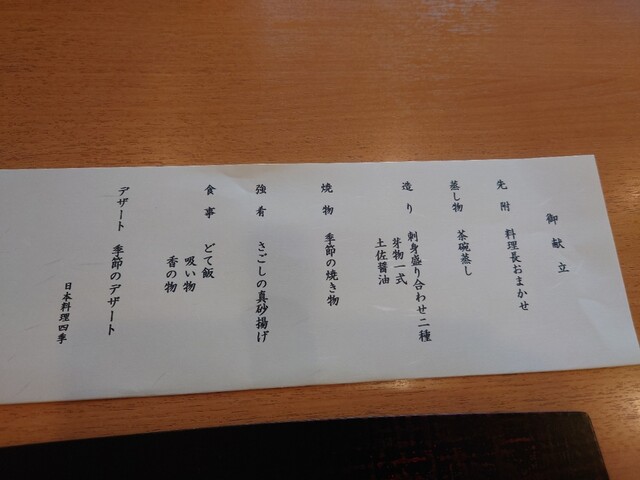 御献立
先附 料理長おまかせ
蒸し物 茶碗蒸し
造り 刺身盛り合わせ二種
芽物一式
土佐醤油
焼物 季節の焼き物
強肴 さごしの真砂揚げ
食事 どて飯
吸い物
香の物
デザート 季節のデザート
日本料理四季